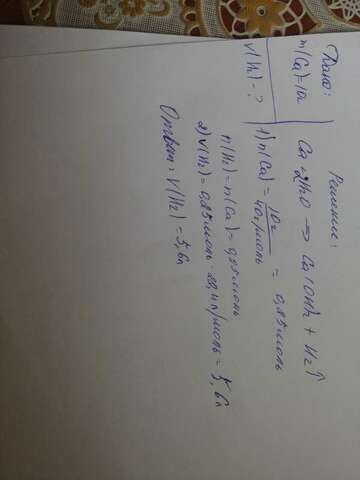 Дано:
m(Ca)=10г
V(H₂)-?
Решение:
Ca+2H₂O → Ca(OH)₂ + H₂↑
1) n(Ca) = 10г / 40г/моль = 0,25моль
n(H₂) = n(Ca) = 0,25моль
2) V(H₂) = 0,25моль · 22,4л/моль = 5,6л
Ответ: V(H₂) = 5,6л